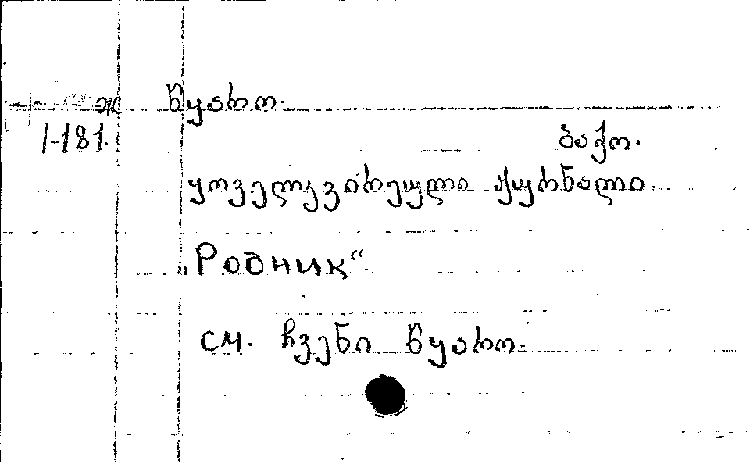 წყარო.
1-181.
ბაქო.
ყოველკვირეული ჟურნალი.
„Родник“
см. ჩვენი წყარო.